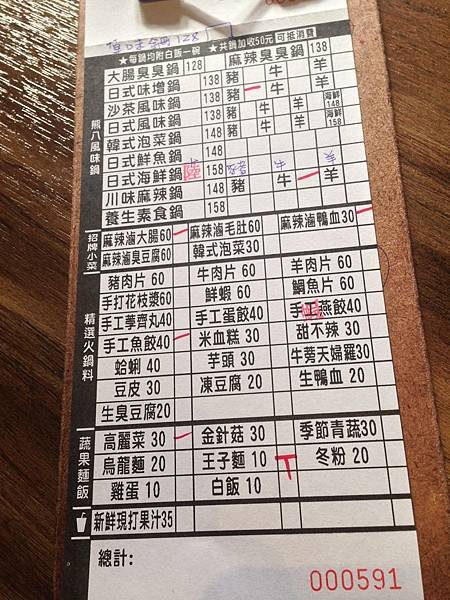 原味鍋128
★每鍋均附白飯一碗 ★共鍋加收50元可抵消費
熊八風味鍋
大腸臭臭鍋 128 麻辣臭臭鍋 138
日式味增鍋 138 豬 牛 羊
沙茶風味鍋
日式風味鍋 138 豬 牛 羊 海鮮148
韓式泡菜鍋 148 豬 牛 羊 海鮮158
日式鮮魚鍋 148
日式海鮮鍋 158 牛 羊
川味麻辣鍋 158 豬 牛 羊
養生素食鍋 158
招牌小菜
麻辣滷大腸60 麻辣滷毛肚60 麻辣滷鴨血30
麻辣滷臭豆腐60 韓式泡菜30
精選火鍋料
豬肉片 60 牛肉片 60 羊肉片 60
手打花枝漿60 鮮蝦 60 鯛魚片 60
手工荸薺丸40 手工蛋餃40 手工燕餃40
手工魚餃40 米血糕 30 甜不辣 30
蛤蜊 40 芋頭 30 牛蒡天婦羅30
豆皮 30 凍豆腐 20 生鴨血 20
生臭豆腐20
蔬果麵飯
高麗菜 30 金針菇 30 季節青蔬30
烏龍麵 20 王子麵 10 冬粉 20
雞蛋 10 白飯 10
新鮮現打果汁35
總計:
000591